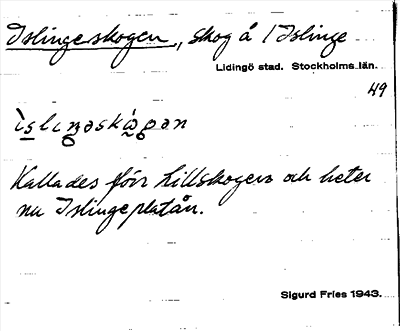 Islingeskogen, skog å Islinge
Lidingö stad. Stockholms län.
49
Kallades förr Lillskogen och heter
nu Islingeplatån.
Sigurd Fries 1943.